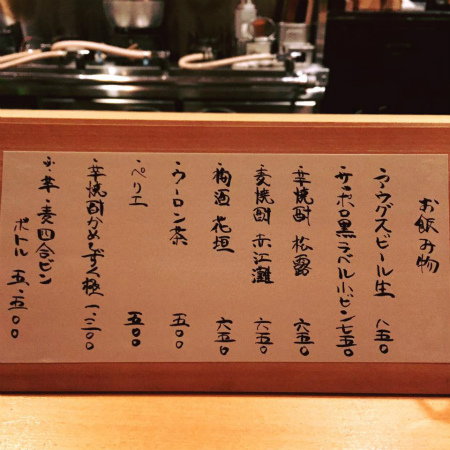 お飲み物
ラ・ウグスビール生 八五〇
サッポロ黒ラベル小ビン 七五〇
芋焼酎 松露 六五〇
麦焼酎 赤江灘 六五〇
梅酒 花垣 六五〇
ウーロン茶 五〇〇
ペリエ 五〇〇
芋焼酎かめしずく極 一、三〇〇
芋・麦四合ビン
ボトル 五、五〇〇